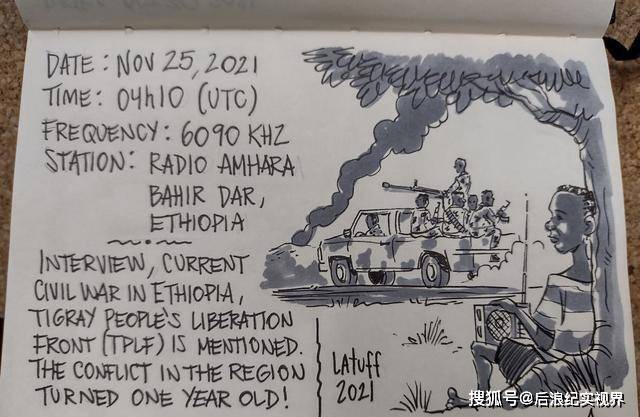 DATE: NOV 25, 2021
TIME: 04h10 (UTC)
FREQUENCY: 6090 KHZ
STATION: RADIO AMHARA
BAHIR DAR,
ETHIOPIA
INTERVIEW, CURRENT
CIVIL WAR IN ETHIOPIA,
TIGRAY PEOPLE'S LIBERATION
FRONT (TPLF) IS MENTIONED.
THE CONFLICT IN THE REGION
TURNED ONE YEAR OLD!
LATUFF
2021
搜狐号@后浪纪实视界